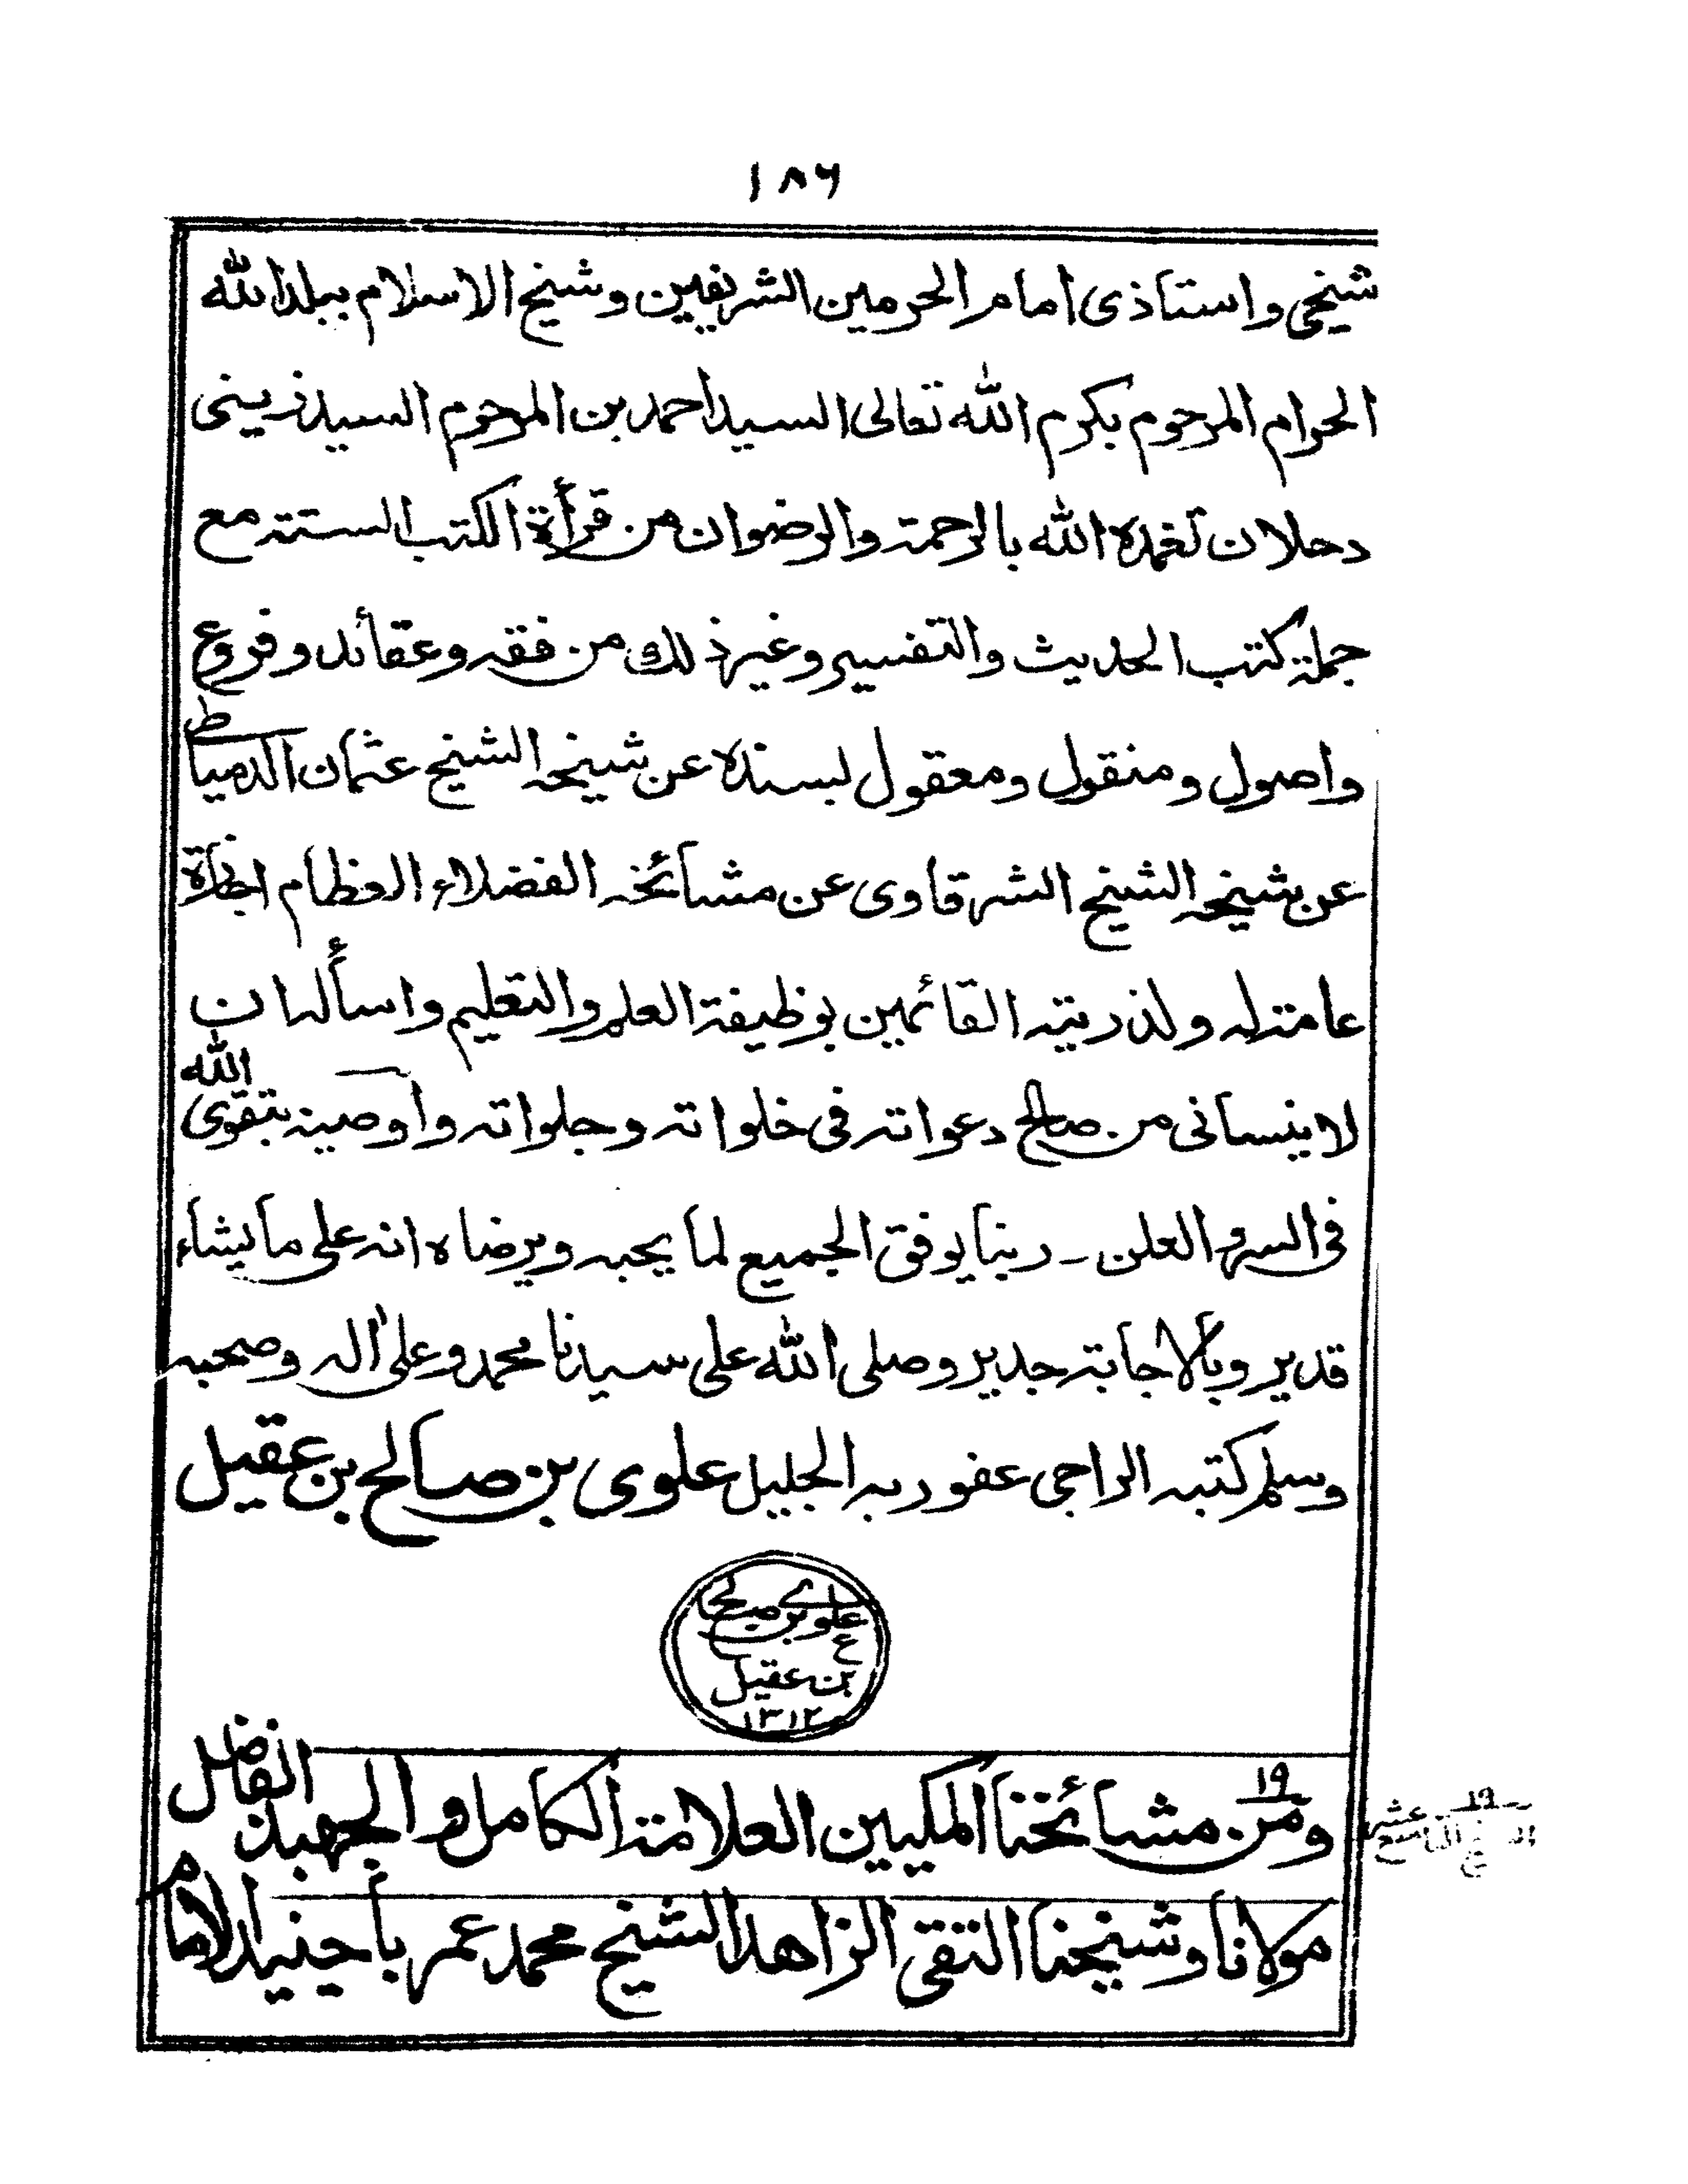 ١٨٦
شيخي واستاذى امام الحرمين الشريفين وشيخ الاسلام ببلد الله
الحرام المرحوم بكرم الله تعالى السيد احمد بن المرحوم السيد زينى
دحلان تغمده الله بالرحمة والرضوان من قرأة الكتب الستة مع
جملة كتب الحديث والتفسير وغير ذلك من فقه وعقائد وفروع
واصول ومنقول ومعقول بسنده عن شيخه الشيخ عثمان الدمياطى
عن شيخه الشيخ الشرقاوى عن مشائخه الفضلاء العظام اجازة
عامة له ولذريته القائمين بوظيفة العلم والتعليم واسأله ان
لا ينسانى من صالح دعواته فى خلواته وجلواته وأوصيه بتقوى الله
فى السر والعلن - ربنا يوفق الجميع لما يحبه ويرضاه انه على ما يشاء
قدير وبالاجابة جدير وصلى الله على سيدنا محمد وعلى اله وصحبه
وسلم كتبه الراجى عفو ربه الجليل علوى بن صالح بن عقيل
علوي بن صالح
بن عقيل
١٣١٢
١٩
ومن مشائخنا المكيين العلامة الكامل والجهبذ الفاضل
مولانا وشيخنا التقى الزاهد الشيخ محمد عمر باجنيد الامام
١٩
الشيخ التاسع عشر